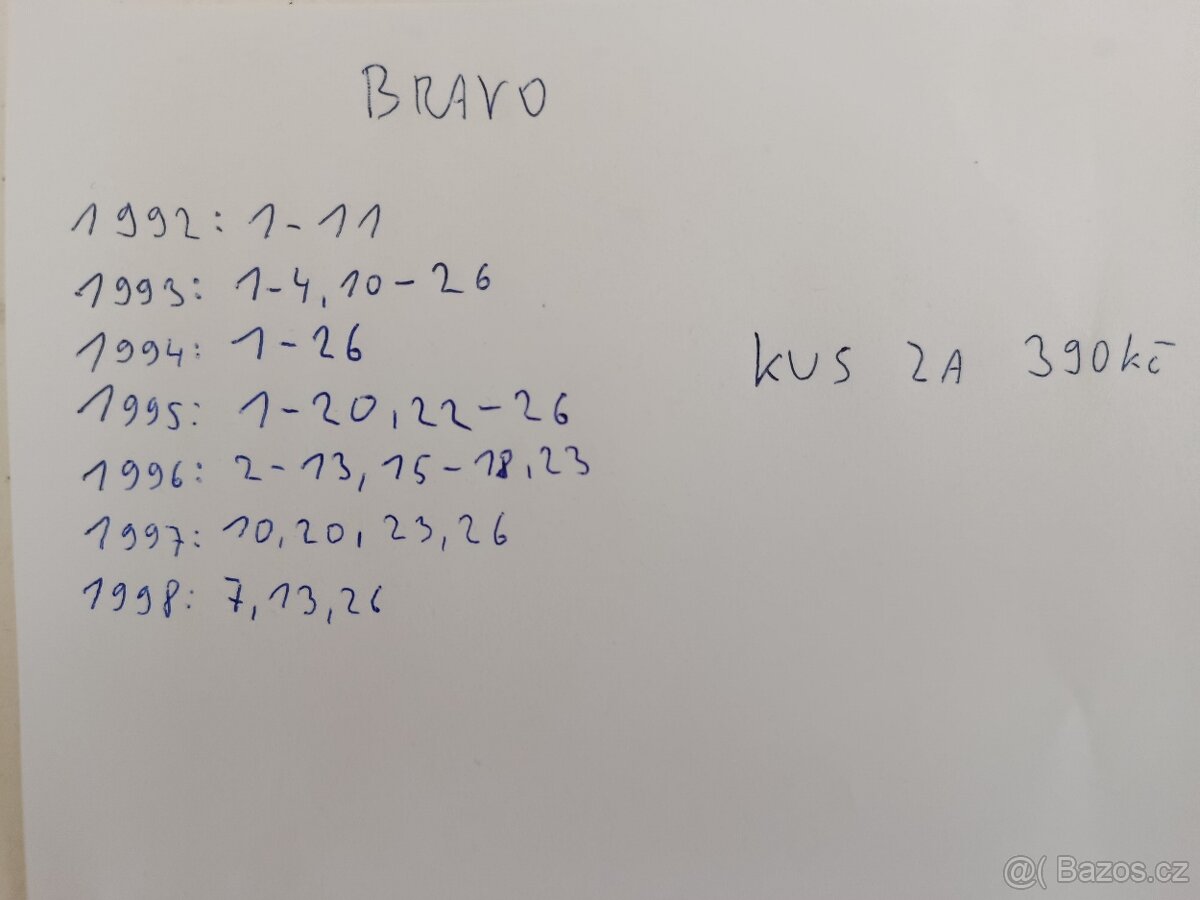 BRAVO
1992: 1-11
1993: 1-4, 10-26
1994: 1-26
1995: 1-20, 22-26
1996: 2-13, 15-18, 23
1997: 10, 20, 23, 26
1998: 7, 13, 26
KUS ZA 390kč
@( Bazos.cz